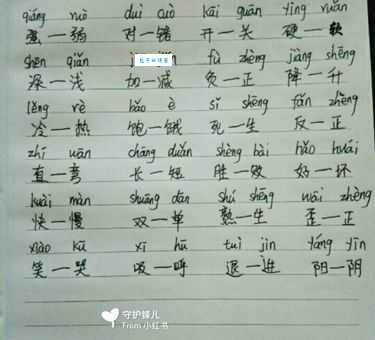 qiáng ruò duì cuò kāi guān yìng ruǎn
强一弱 对一错 开一关 硬一软
shēn qiǎn fù zhèng jiàng shēng
深一浅 加一减 负一正 降一升
lěng rè bǎo è sǐ shēng fǎn zhèng
冷一热 饱一饿 死一生 反一正
zhí wān cháng duǎn shèng bài hǎo huài
直一弯 长一短 胜一败 好一坏
kuài màn shuāng dān shú shēng wāi zhèng
快一慢 双一单 熟一生 歪一正
xiào kū xī hū tuì jìn yáng yīn
笑一哭 吸一呼 退一进 阳一阴
守护蜂儿
From 小红书